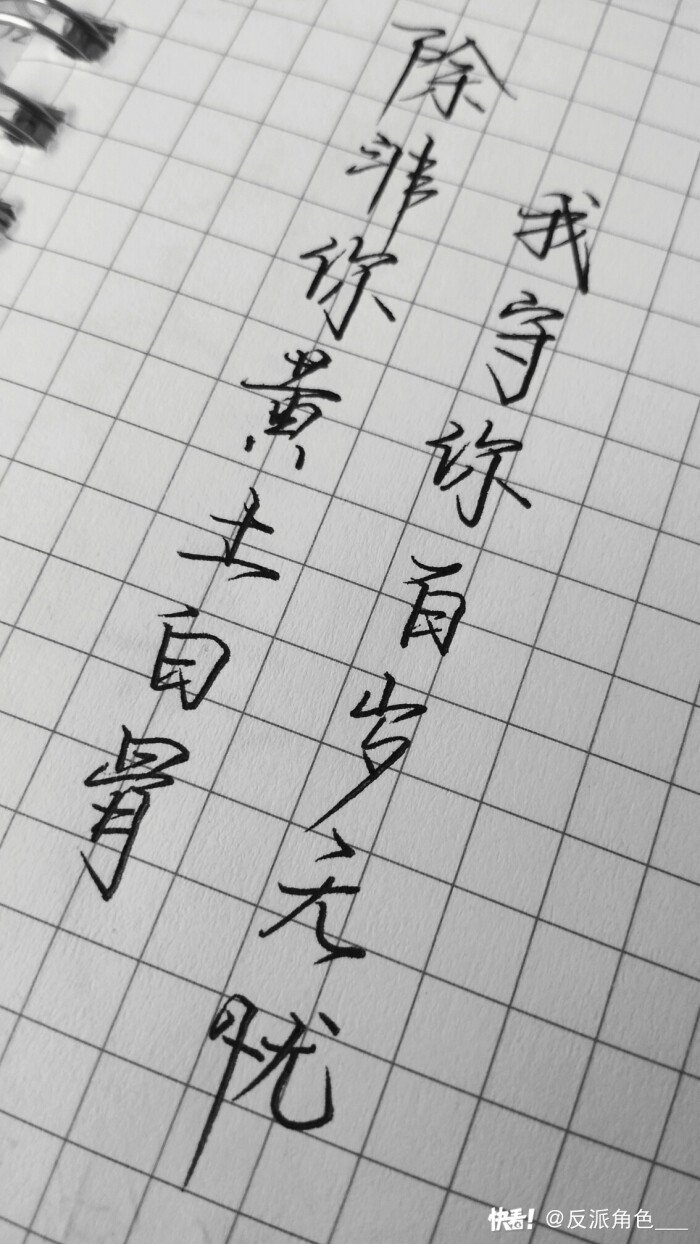 除非你黄土白骨
我守你百岁无忧
快看! @反派角色___